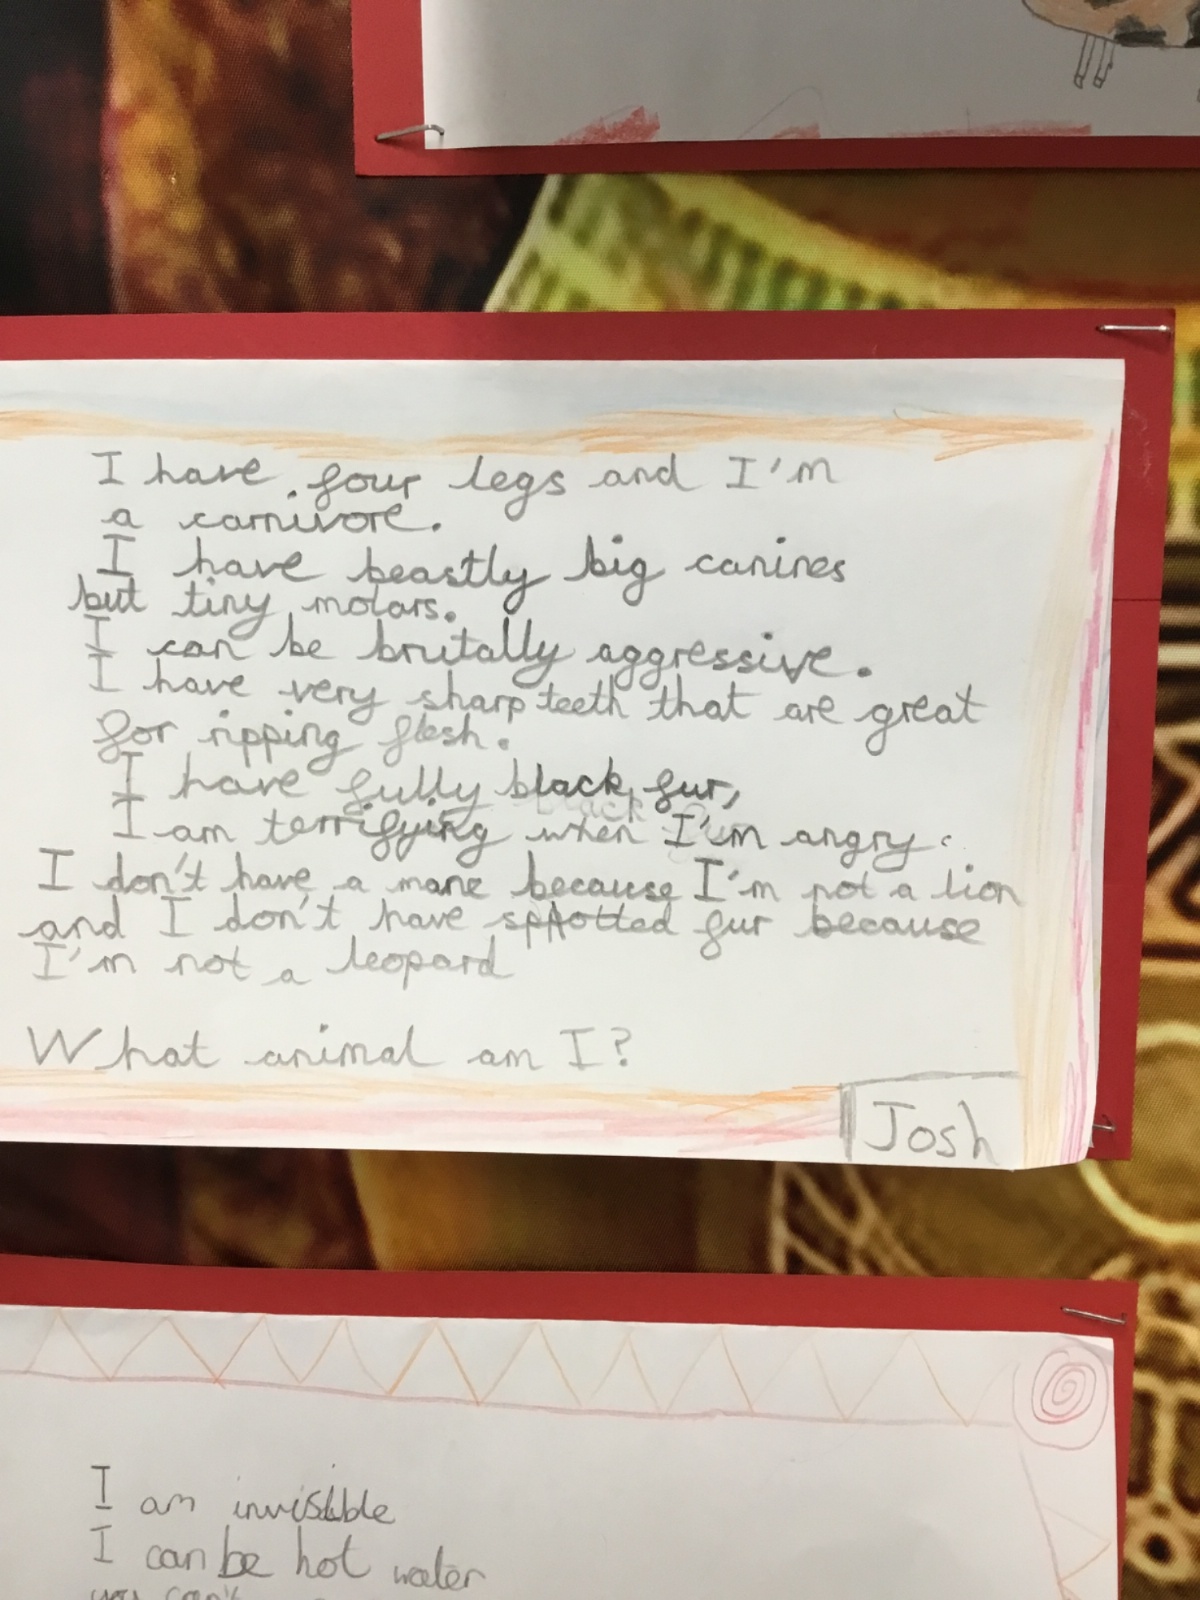 I have four legs and I'm
a carnivore.
I have beastly big canines
but tiny molars.
I can be brutally aggressive.
I have very sharp teeth that are great
for ripping flesh.
I have fully black fur,
I am terrifying when I'm angry.
I don't have a mane because I'm not a lion
and I don't have spotted fur because
I'm not a leopard
What animal am I?
Josh
I am invisible
I can be hot water
you can't